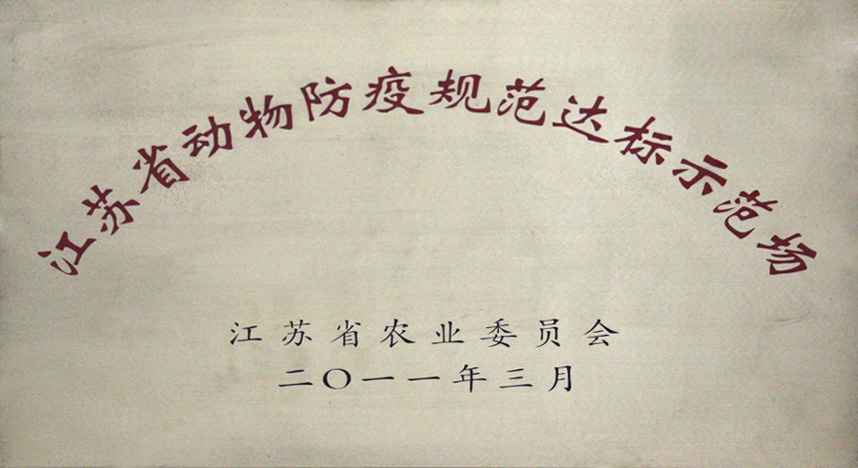 江苏省动物防疫规范达标示范场
江苏省农业委员会
二〇一一年三月